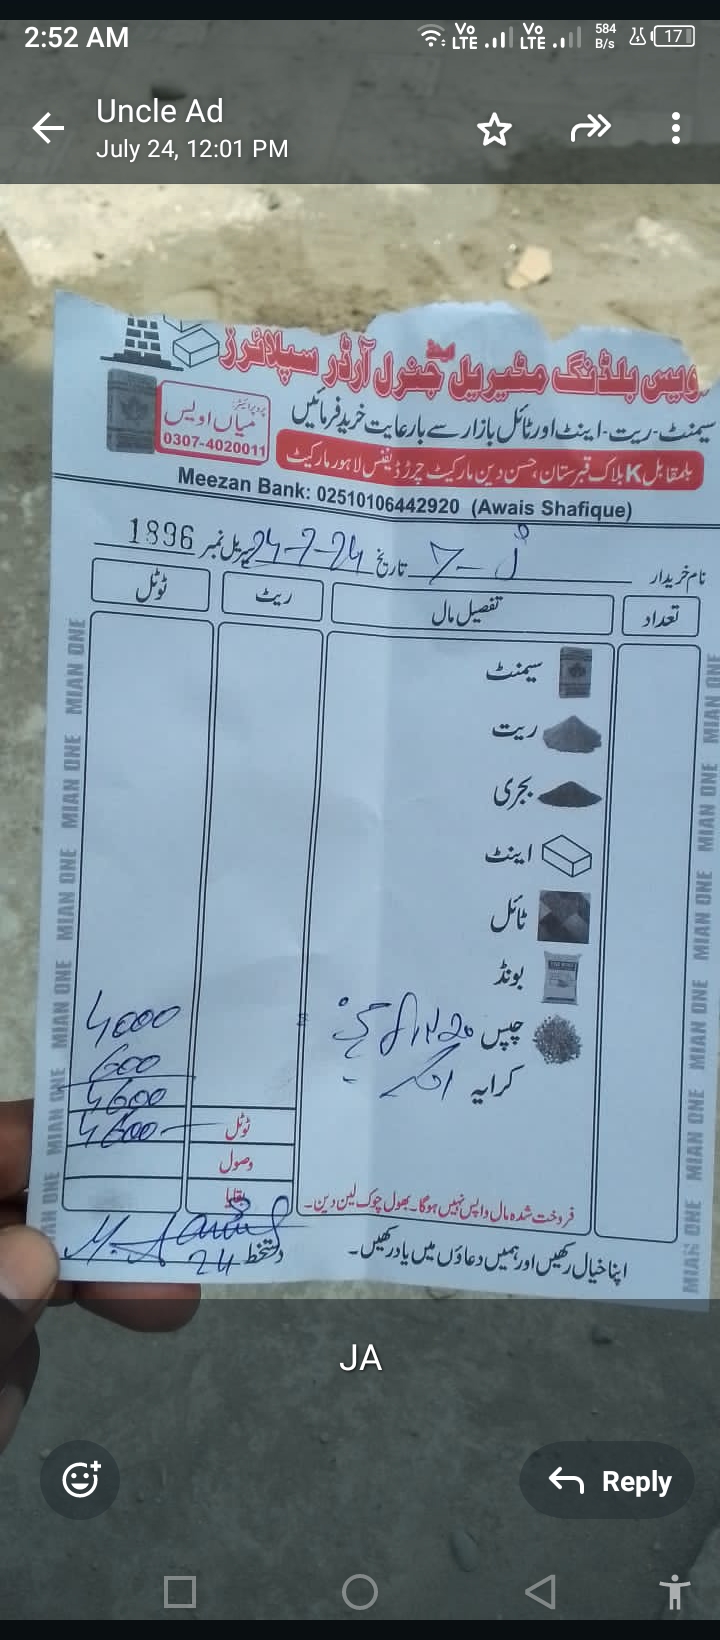 2:52 AM
Vo LTE Vo LTE 584 B/s 17
Uncle Ad
July 24, 12:01 PM
ویس بلڈنگ مٹیریل اینڈ جنرل آرڈر سپلائرز
سیمنٹ-ریت-اینٹ اور ٹائل بازار سے بارعایت خرید فرمائیں
پروپرائیٹر:
میاں اویس
0307-4020011
بلمقابل K بلاک قبرستان، حسن دین مارکیٹ چرڑ ڈیفنس لاہور مارکیٹ
Meezan Bank: 02510106442920 (Awais Shafique)
نام خریدار
تاریخ 24-7-24 سیریل نمبر 1896
تعداد تفصیل مال ریٹ ٹوٹل
سیمنٹ
ریت
بجری
اینٹ
ٹائل
بونڈ
چپس
4000
کرایہ
600
4600
ٹوٹل 4600
وصول
بقایا
فروخت شدہ مال واپس نہیں ہوگا۔ بھول چوک لین دین۔
دستخط
24
اپنا خیال رکھیں اور ہمیں دعاؤں میں یاد رکھیں۔
MIAN ONE MIAN ONE MIAN ONE MIAN ONE MIAN ONE
MIAN ONE MIAN ONE MIAN ONE MIAN ONE MIAN ONE MIAN ONE
JA
Reply